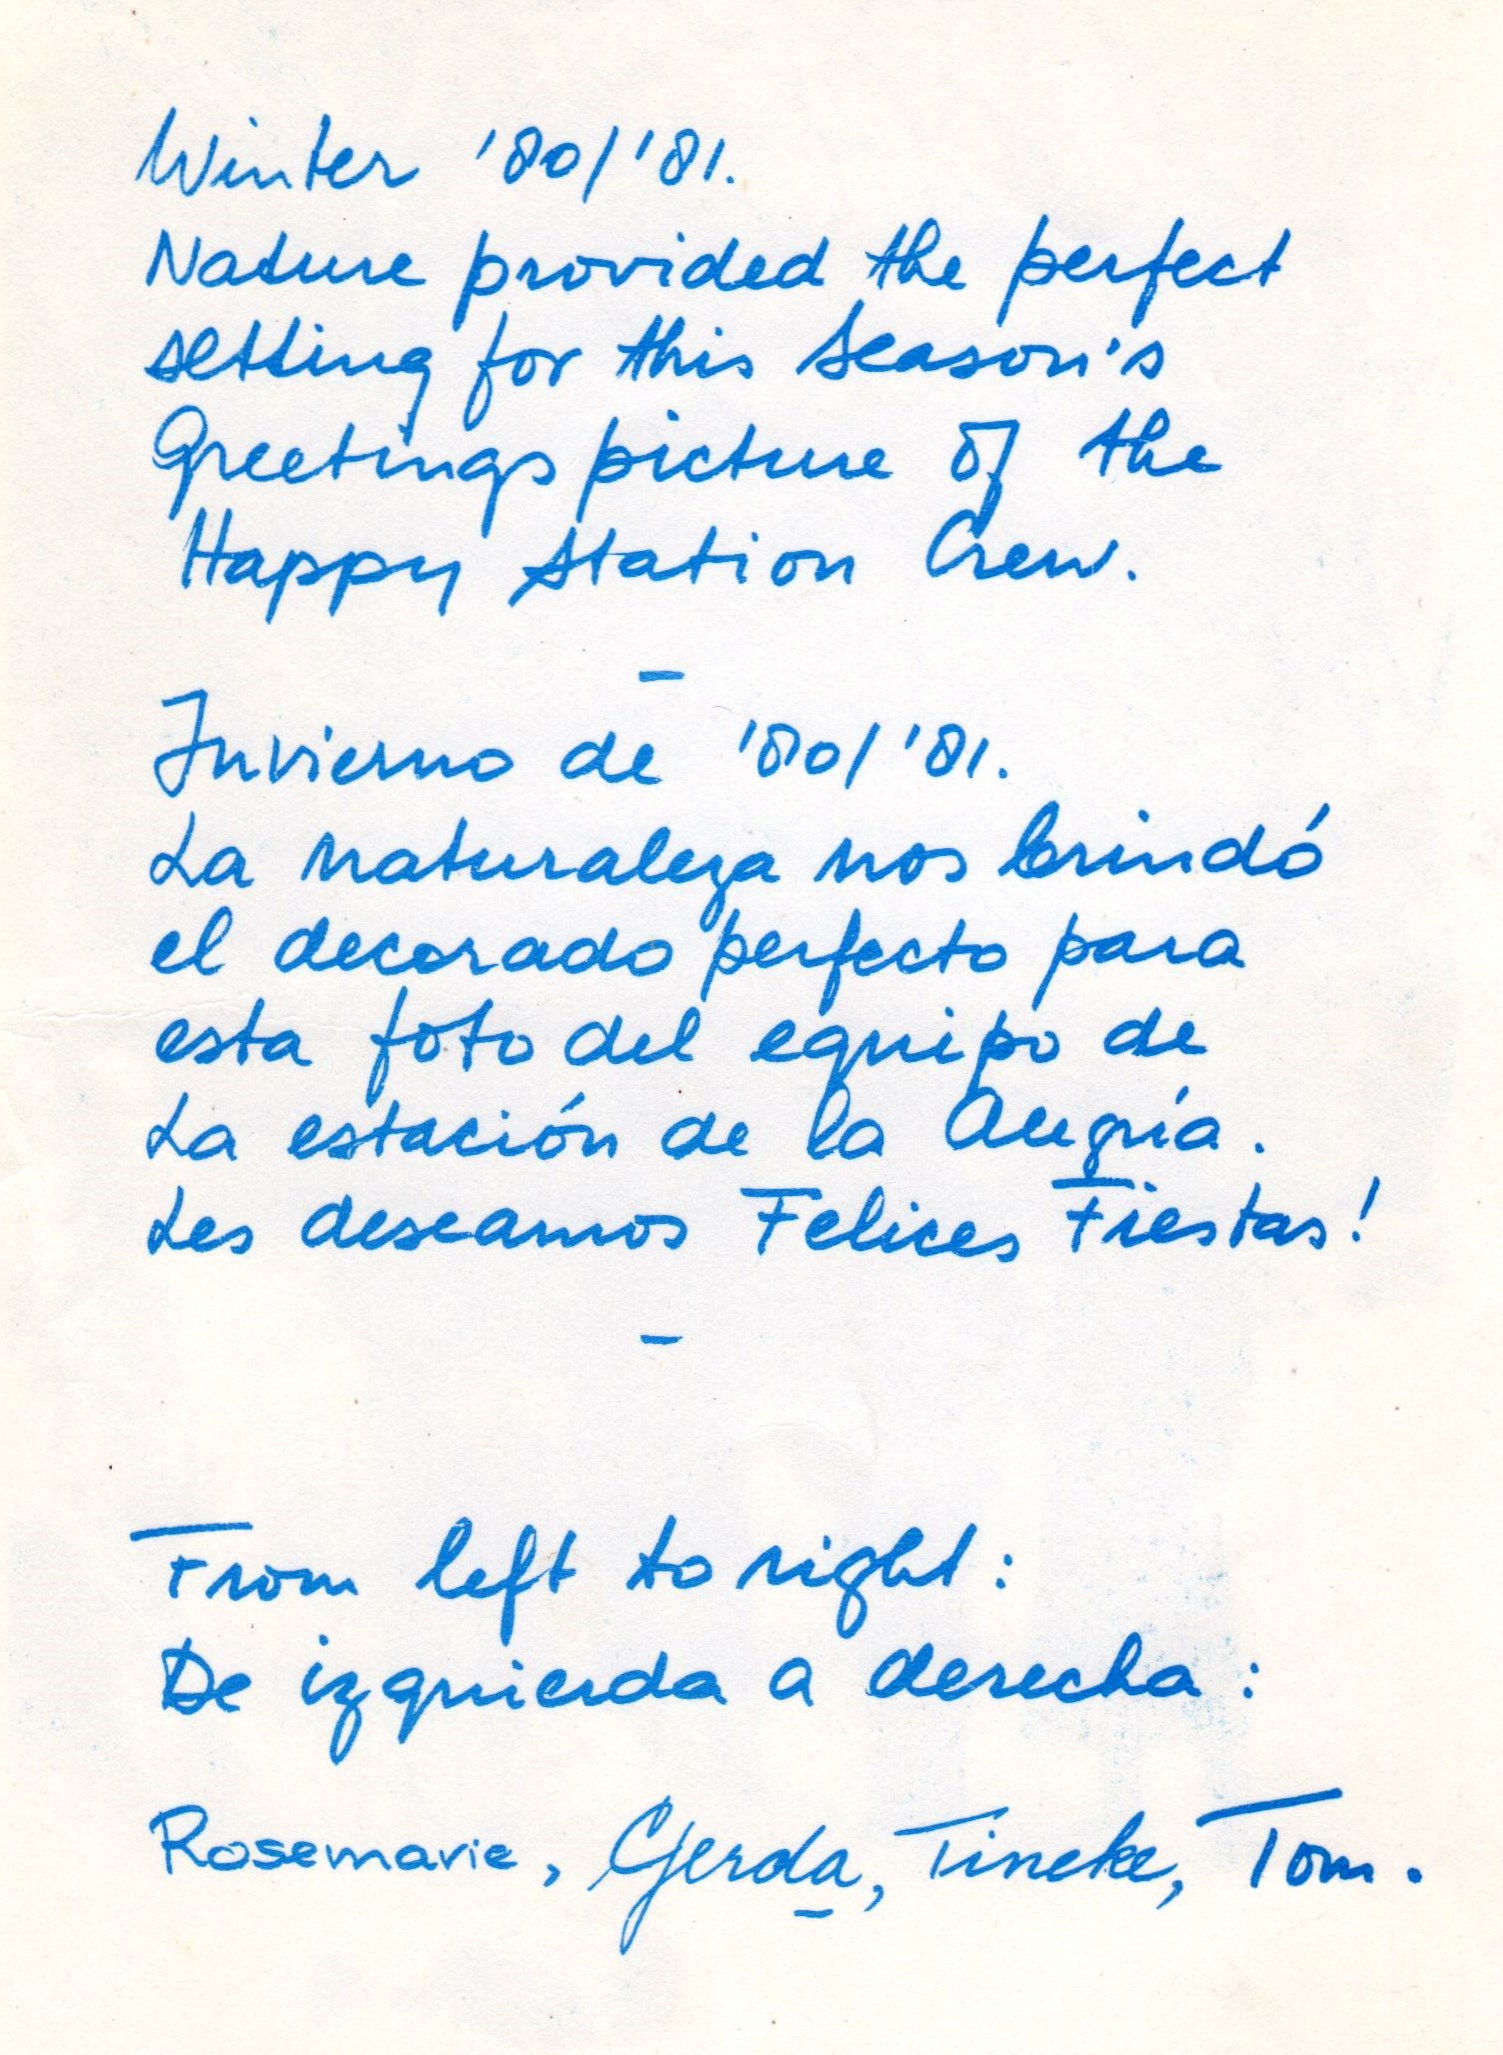 Winter '80/'81.
Nature provided the perfect
setting for this Season's
Greetings picture of the
Happy Station Crew.
–
Invierno de '80/'81.
La naturaleza nos brindó
el decorado perfecto para
esta foto del equipo de
La estación de la Alegría.
Les deseamos Felices Fiestas!
–
From left to right:
De izquierda a derecha:
Rosemarie, Gerda, Tineke, Tom.